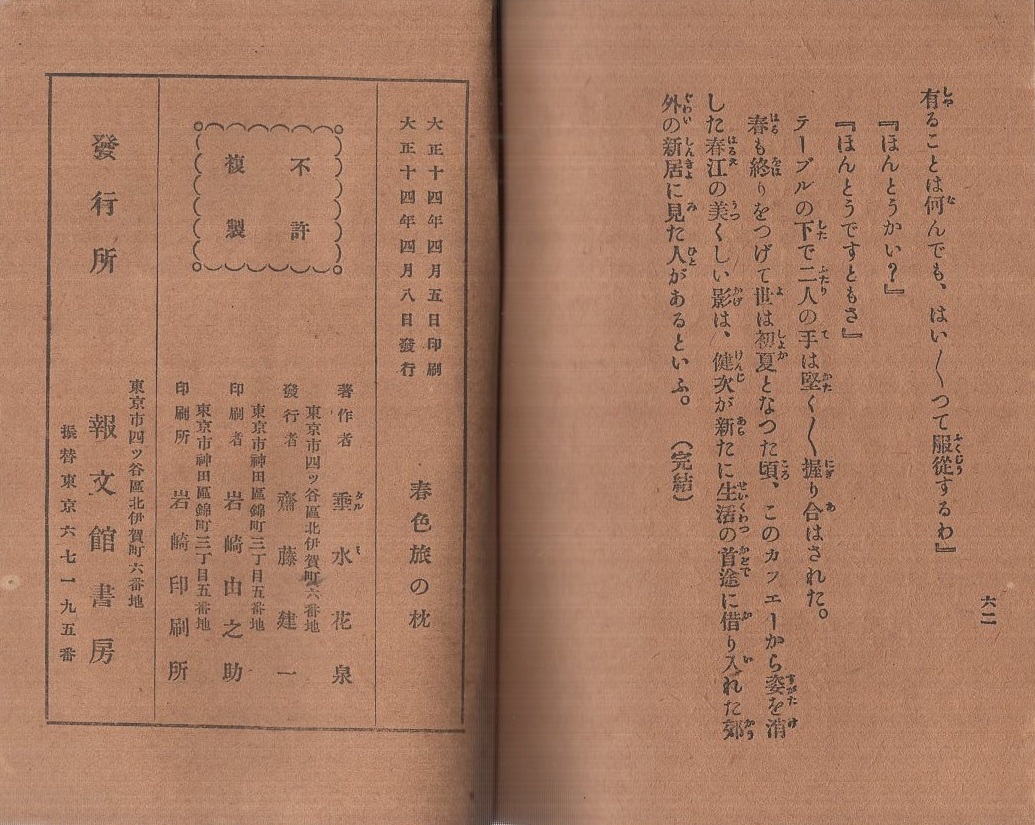 有ることは何んでも、はい〳〵つて服從するわ』
『ほんとうかい?』
『ほんとうですともさ』
テーブルの下で二人の手は堅く〳〵握り合はされた。
春も終りをつげて世は初夏となつた頃、このカフエーから姿を消
した春江の美くしい影は、健次が新たに生活の首途に借り入れた郊
外の新居に見た人があるといふ。(完結)
六二
大正十四年四月五日印刷
大正十四年四月八日發行
春色旅の枕
不許
複製
著作者 垂水花泉
東京市四ッ谷區北伊賀町六番地
發行者 齋藤建一
東京市神田區錦町三丁目五番地
印刷者 岩崎由之助
東京市神田區錦町三丁目五番地
印刷所 岩崎印刷所
東京市四ッ谷區北伊賀町六番地
發行所 報文館書房
振替東京六七一九五番